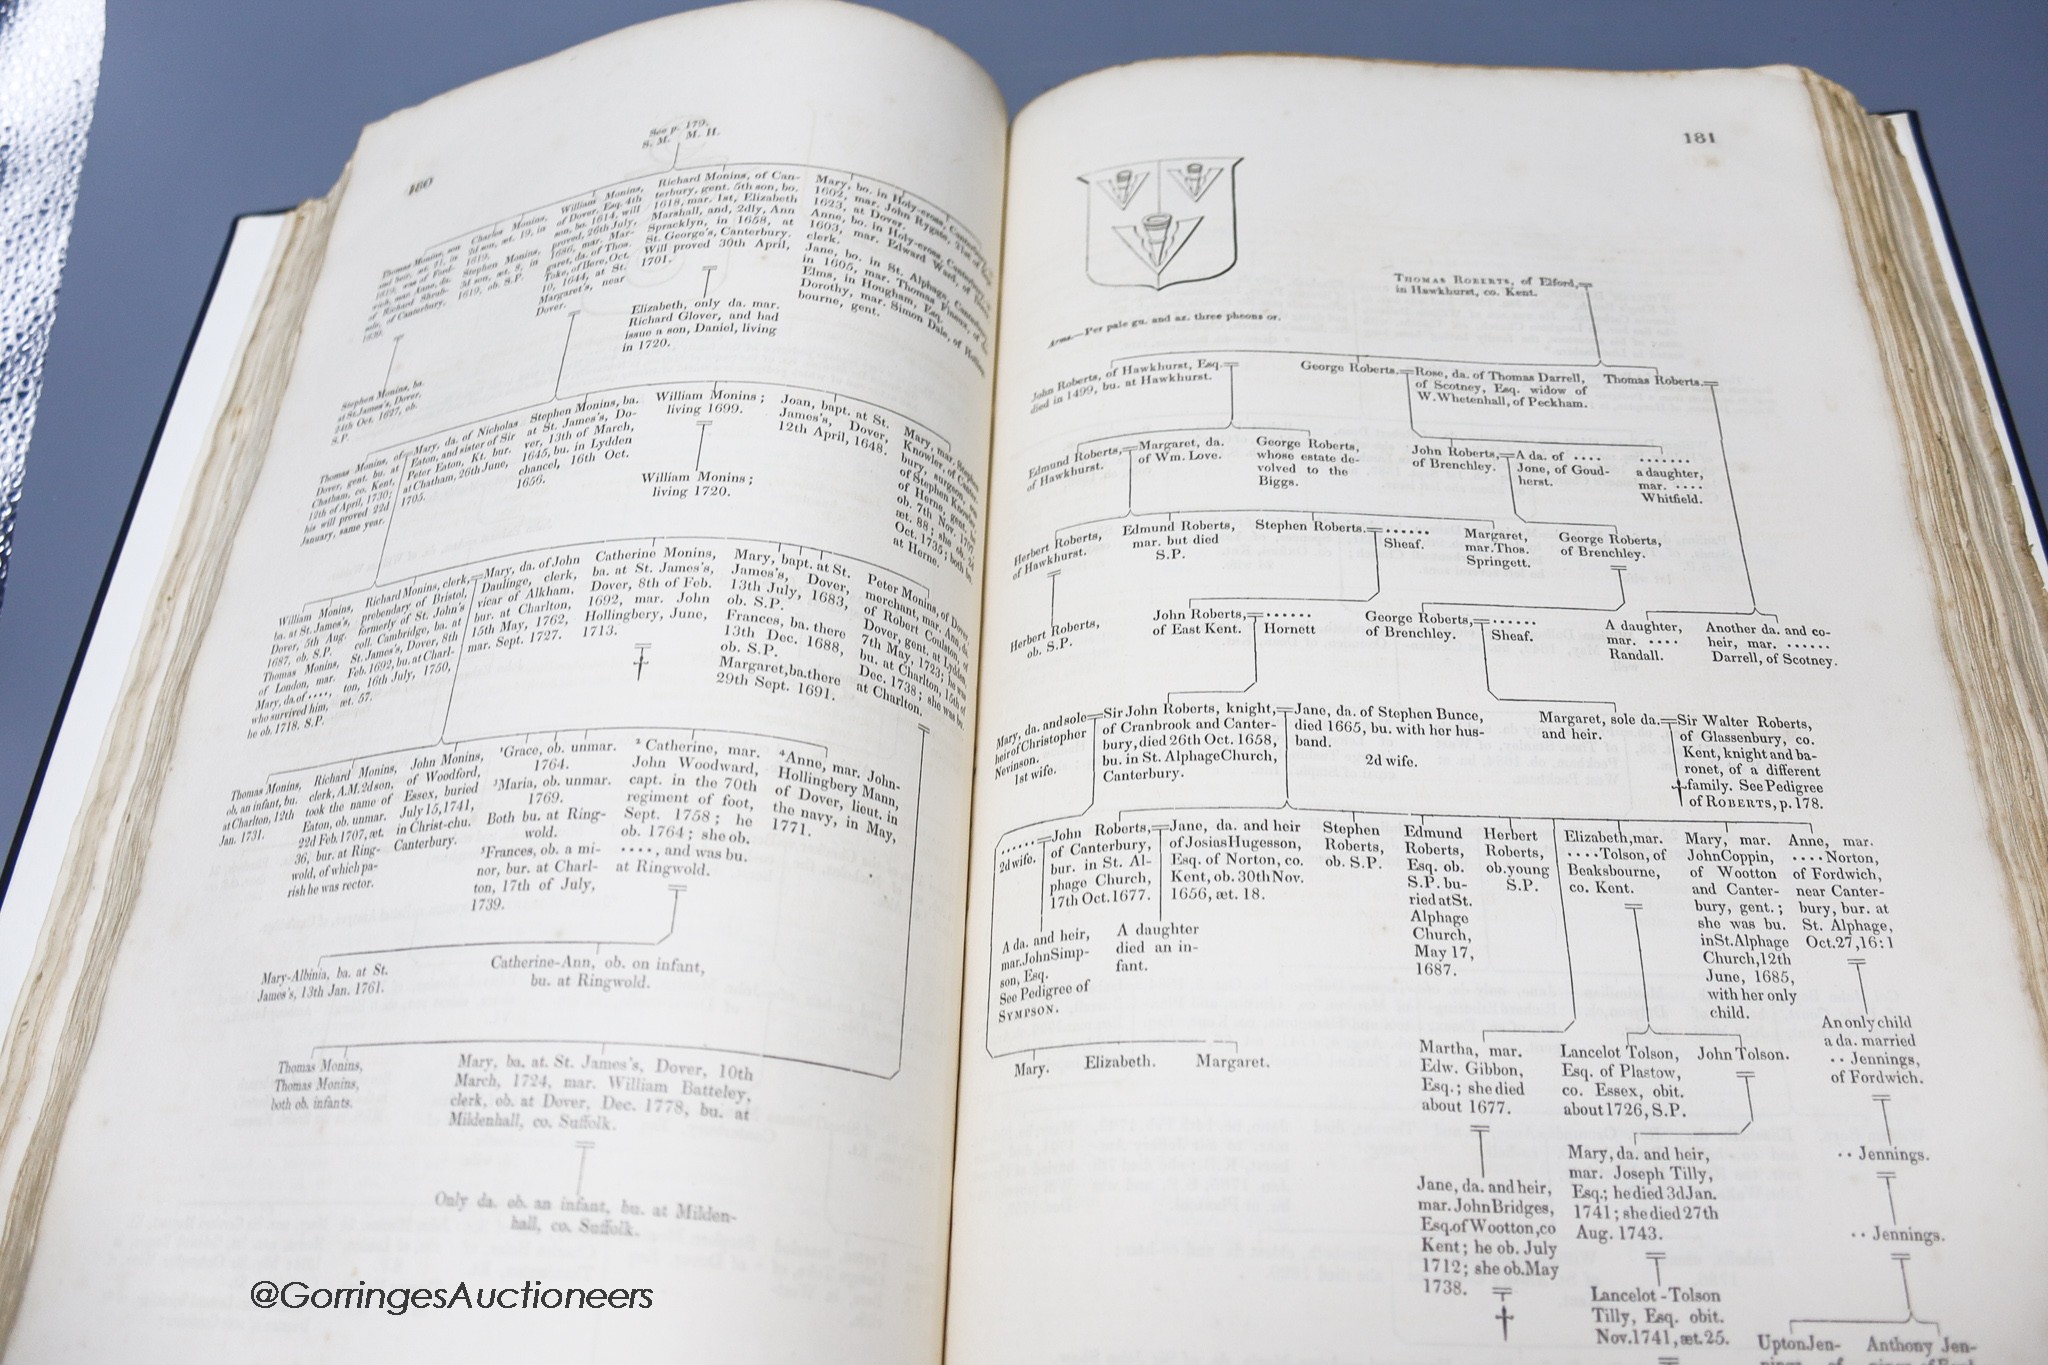 180
See p. 179.
S. M. M. H.
Thomas Monins, son
and heir, æt. 21, in
1619, was of Ford-
wich, mar. Anne, da.
of Richard
of Canterbury.
Charles Monins,
2d son, æt. 19, in
1619.
Stephen Monins,
3d son, æt. 8, in
1619, ob. S.P.
William Monins,
of Dover, Esq. 4th
son, bo. 1614, will
proved, 26th July,
1686, mar. Mar-
garet, da. of Thos.
Toke, of Bere, Oct.
10, 1644, at St.
Margaret's, near
Dover.
Richard Monins, of Can-
terbury, gent. 5th son, bo.
1618, mar. 1st, Elizabeth
Marshall, and, 2dly, Ann
Spracklyn, in 1658, at
St. George's, Canterbury.
Will proved 30th April,
1701.
Mary, bo. in Holy-cross, Canterbury,
1602, mar. John Rygate,
1623, at Dover.
Anne, bo. in Holy-cross,
1603, mar. Edward Ward, of
clerk.
Jane, bo. in St. Alphage, Canterbury,
in 1605, mar. Thomas Pineux, of
Elms, in Hougham, Esq.
Dorothy, mar. Simon Dale, of
bourne, gent.
Elizabeth, only da. mar.
Richard Glover, and had
issue a son, Daniel, living
in 1720.
Stephen Monins, ba.
at St. James's, Dover,
24th Oct. 1627, ob.
S.P.
Thomas Monins, of
Dover, gent. bu. at
Chatham, co. Kent,
12th of April, 1730;
his will proved 22d
January, same year.
Mary, da. of Nicholas
Eaton, and sister of Sir
Peter Eaton, Kt. bur.
at Chatham, 26th June,
1705.
Stephen Monins, ba.
at St. James's, Do-
ver, 13th of March,
1645, bu. in Lydden
chancel, 16th Oct.
1656.
William Monins;
living 1699.
William Monins;
living 1720.
Joan, bapt. at St.
James's, Dover,
12th April, 1648.
Mary, mar. Stephen
Knowler, of Canter-
bury, surgeon, son
of Stephen Knowler,
of Herne, gent. he
ob. 7th Nov. 1707,
æt. 88; she ob. 2d
Oct. 1735; both bu.
at Herne.
William Monins,
ba. at St. James's,
Dover, 5th Aug.
1687, ob. S.P.
Thomas Monins,
of London, mar.
Mary, da. of ····,
who survived him,
he ob. 1718. S.P.
Richard Monins, clerk,
prebendary of Bristol,
formerly of St. John's
coll. Cambridge, ba. at
St. James's, Dover, 8th
Feb. 1692, bu. at Charl-
ton, 16th July, 1750,
æt. 57.
Mary, da. of John
Daulinge, clerk,
vicar of Alkham,
bur. at Charlton,
15th May, 1762,
mar. Sept. 1727.
Catherine Monins,
ba. at St. James's,
Dover, 8th of Feb.
1692, mar. John
Hollingbery, June,
1713.
Mary, bapt. at St.
James's, Dover,
13th July, 1683,
ob. S.P.
Frances, ba. there
13th Dec. 1688,
ob. S.P.
Margaret, ba. there
29th Sept. 1691.
Peter Monins, of Dover,
merchant, mar. Ann, da.
of Robert Coulston, of
Dover, gent. at Lydden,
7th May, 1723; he was
bu. at Charlton, 15th of
Dec. 1738; she was bu.
at Charlton.
Thomas Monins,
ob. an infant, bu.
at Charlton, 12th
Jan. 1731.
Richard Monins,
clerk, A.M. 2d son,
took the name of
Eaton, ob. unmar.
22d Feb. 1707, æt.
36, bur. at Ring-
wold, of which pa-
rish he was rector.
John Monins,
of Woodford,
Essex, buried
July 15, 1741,
in Christ-chu.
Canterbury.
¹Grace, ob. unmar.
1764.
²Maria, ob. unmar.
1769.
Both bu. at Ring-
wold.
³Frances, ob. a mi-
nor, bur. at Charl-
ton, 17th of July,
1739.
² Catherine, mar.
John Woodward,
capt. in the 70th
regiment of foot,
Sept. 1758; he
ob. 1764; she ob.
····, and was bu.
at Ringwold.
⁴Anne, mar. John-
Hollingbery Mann,
of Dover, lieut. in
the navy, in May,
1771.
Mary-Albinia, ba. at St.
James's, 13th Jan. 1761.
Catherine-Ann, ob. on infant,
bu. at Ringwold.
Thomas Monins,
Thomas Monins,
both ob. infants.
Mary, ba. at. St. James's, Dover, 10th
March, 1724, mar. William Batteley,
clerk, ob. at Dover, Dec. 1778, bu. at
Mildenhall, co. Suffolk.
Only da. ob. an infant, bu. at Milden-
hall, co. Suffolk.
@GorringesAuctioneers
181
Arms—Per pale gu. and az. three pheons or.
THOMAS ROBERTS, of Elford,
in Hawkhurst, co. Kent.
John Roberts, of Hawkhurst, Esq.
died in 1499, bu. at Hawkhurst.
George Roberts.
Rose, da. of Thomas Darrell,
of Scotney, Esq. widow of
W. Whetenhall, of Peckham.
Thomas Roberts.
Edmund Roberts,
of Hawkhurst.
Margaret, da.
of Wm. Love.
George Roberts,
whose estate de-
volved to the
Biggs.
John Roberts,
of Brenchley.
A da. of ····
Jone, of Goud-
herst.
······
a daughter,
mar. ····
Whitfield.
Herbert Roberts,
of Hawkhurst.
Edmund Roberts,
mar. but died
S.P.
Stephen Roberts.
······
Sheaf.
Margaret,
mar. Thos.
Springett.
George Roberts,
of Brenchley.
Herbert Roberts,
ob. S.P.
John Roberts,
of East Kent.
······
Hornett
George Roberts,
of Brenchley.
······
Sheaf.
A daughter,
mar. ····
Randall.
Another da. and co-
heir, mar. ······
Darrell, of Scotney.
Mary, da. and sole
heir of Christopher
Nevinson.
1st wife.
Sir John Roberts, knight,
of Cranbrook and Canter-
bury, died 26th Oct. 1658,
bu. in St. Alphage Church,
Canterbury.
Jane, da. of Stephen Bunce,
died 1665, bu. with her hus-
band.
2d wife.
Margaret, sole da.
and heir.
Sir Walter Roberts,
of Glassenbury, co.
Kent, knight and ba-
ronet, of a different
family. See Pedigree
of ROBERTS, p. 178.
······
2d wife.
John Roberts,
of Canterbury,
bur. in St. Al-
phage Church,
17th Oct. 1677.
Jane, da. and heir
of Josias Hugesson,
Esq. of Norton, co.
Kent, ob. 30th Nov.
1656, æt. 18.
Stephen
Roberts,
ob. S.P.
Edmund
Roberts,
Esq. ob.
S.P. bu-
ried at St.
Alphage
Church,
May 17,
1687.
Herbert
Roberts,
ob. young
S.P.
Elizabeth, mar.
····Tolson, of
Beaksbourne,
co. Kent.
Mary, mar.
John Coppin,
of Wootton
and Canter-
bury, gent.;
she was bu.
in St. Alphage
Church, 12th
June, 1685,
with her only
child.
Anne, mar.
····Norton,
of Fordwich,
near Canter-
bury, bur. at
St. Alphage,
Oct. 27, 16:1
A da. and heir,
mar. John Simp-
son, Esq.
See Pedigree of
SYMPSON.
A daughter
died an in-
fant.
Mary. Elizabeth. Margaret.
Martha, mar.
Edw. Gibbon,
Esq.; she died
about 1677.
Lancelot Tolson,
Esq. of Plastow,
co. Essex, obit.
about 1726, S.P.
John Tolson.
An only child
a da. married
·· Jennings,
of Fordwich.
Jane, da. and heir,
mar. John Bridges,
Esq. of Wootton, co
Kent; he ob. July
1712; she ob. May
1738.
Mary, da. and heir,
mar. Joseph Tilly,
Esq.; he died 3d Jan.
1741; she died 27th
Aug. 1743.
·· Jennings.
·· Jennings.
Lancelot-Tolson
Tilly, Esq. obit.
Nov. 1741, æt. 25.
Upton Jen-
Anthony Jen-